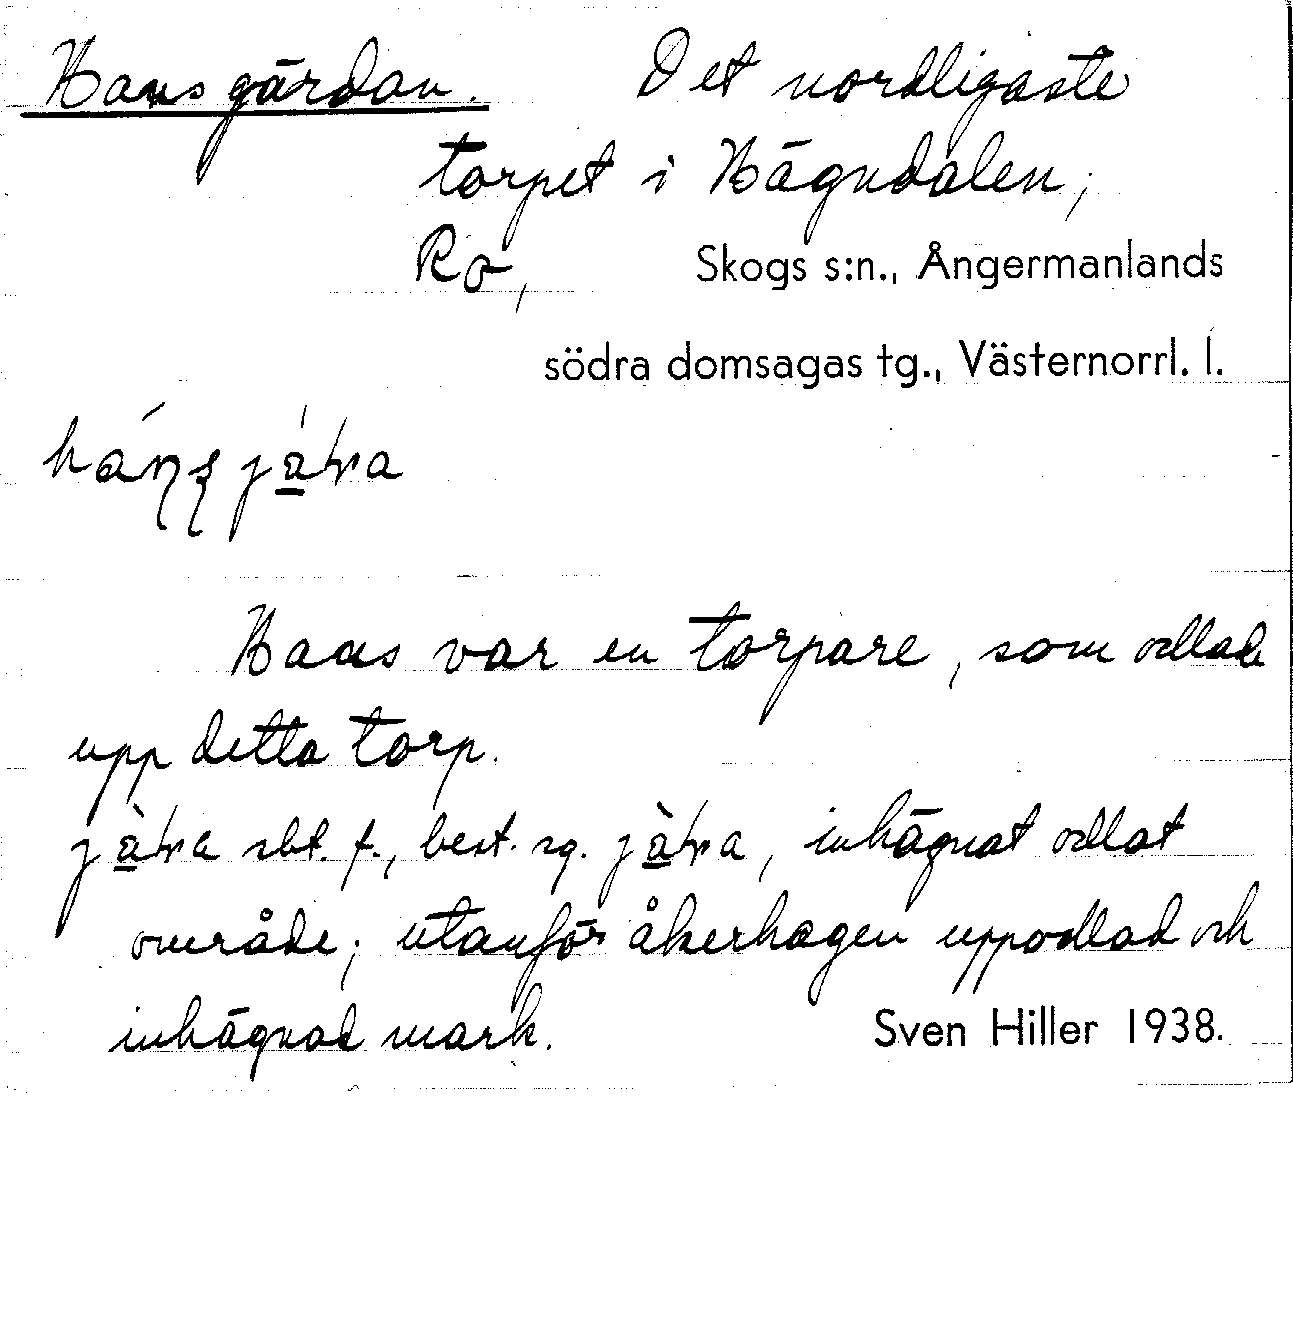 Hansgärdan. Det nordligaste
torpet i Hägndalen,
Ro, Skogs s:n., Ångermanlands
södra domsagas tg., Västernorrl. l.
Hans var en torpare, som odlade
upp detta torp.
sbt. f., best. sg. , inhägnat odlat
område; utanför åkerhagen uppodlad och
inhägnad mark. Sven Hiller 1938.